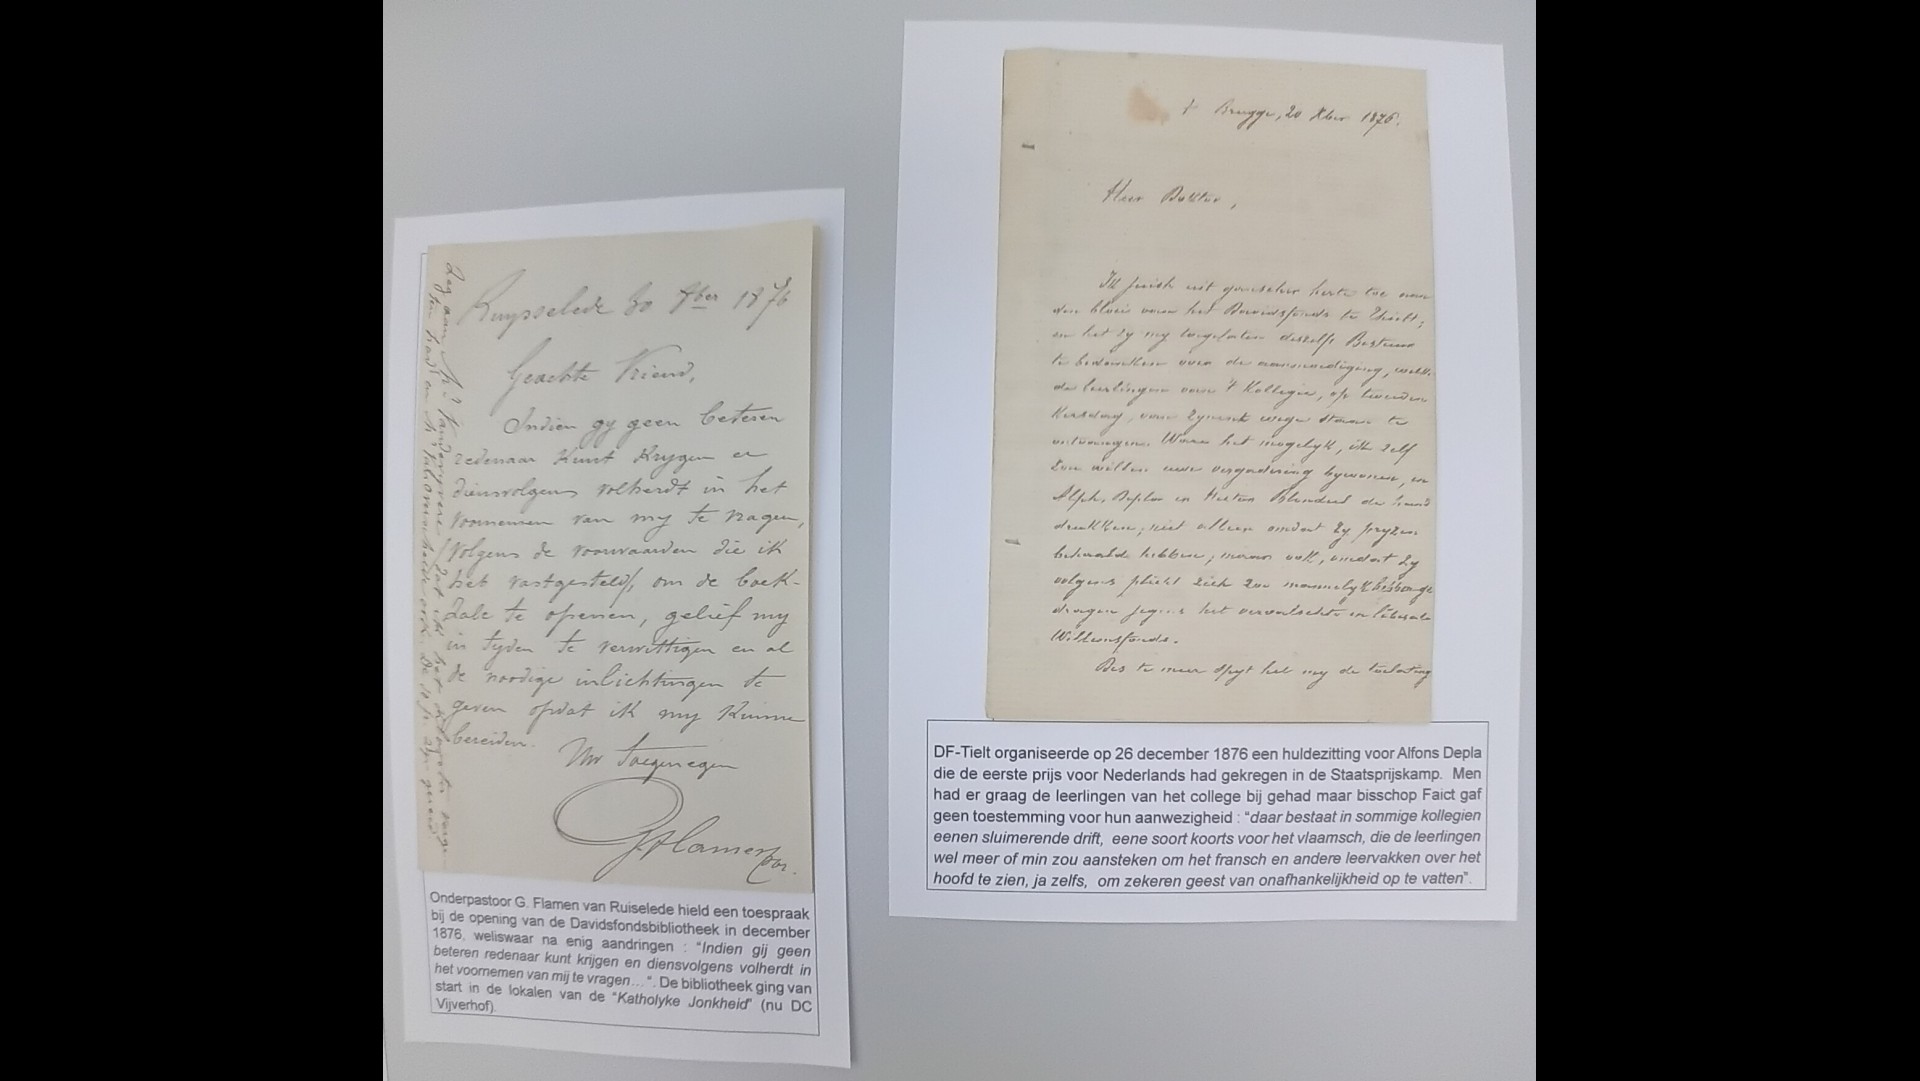 Ruysselede 30 9ber 1876
Geachte Vriend,
Indien gy geen beteren
redenaar kunt krygen en
diensvolgens volherdt in het
voornemen van my te vragen,
(volgens de voorwaarden die ik
heb vastgesteld), om de boek-
zale te openen, gelief my
in tyden te verwittigen en al
de noodige inlichtingen te
geven opdat ik my kunne
bereiden.
Uw toegenegen
G. Flamen
Onderpastoor G. Flamen van Ruiselede hield een toespraak
bij de opening van de Davidsfondsbibliotheek in december
1876, weliswaar na enig aandringen : “Indien gij geen
beteren redenaar kunt krijgen en diensvolgens volherdt in
het voornemen van mij te vragen…“. De bibliotheek ging van
start in de lokalen van de “Katholyke Jonkheid” (nu DC
Vijverhof).
† Brugge, 20 Xber 1876.
Heer Doktor,
Ik juich uit ganscher herte toe aan
den bloei van het Davidsfonds te Thielt;
en het zy my toegelaten deszelfs Bestuur
te bedanken over de aanmoediging, welke
de leerlingen van 't Kollegie, op tweeden
Kersdag, van zynent wege staan te
ontvangen. Ware het mogelyk, ik zelf
zou willen uwe vergadering bywonen, en
Alph. Depla en Blondeel de hand
drukken; niet alleen omdat zy pryzen
behaald hebben; maar ook, omdat zy
volgens plicht zich zoo mannelyk
dragen jegens het verwaalschte en liberale
Willemsfonds.
Des te meer spyt het my de toelating
DF-Tielt organiseerde op 26 december 1876 een huldezitting voor Alfons Depla
die de eerste prijs voor Nederlands had gekregen in de Staatsprijskamp. Men
had er graag de leerlingen van het college bij gehad maar bisschop Faict gaf
geen toestemming voor hun aanwezigheid : “daar bestaat in sommige kollegien
eenen sluimerende drift, eene soort koorts voor het vlaamsch, die de leerlingen
wel meer of min zou aansteken om het fransch en andere leervakken over het
hoofd te zien, ja zelfs, om zekeren geest van onafhankelijkheid op te vatten”.